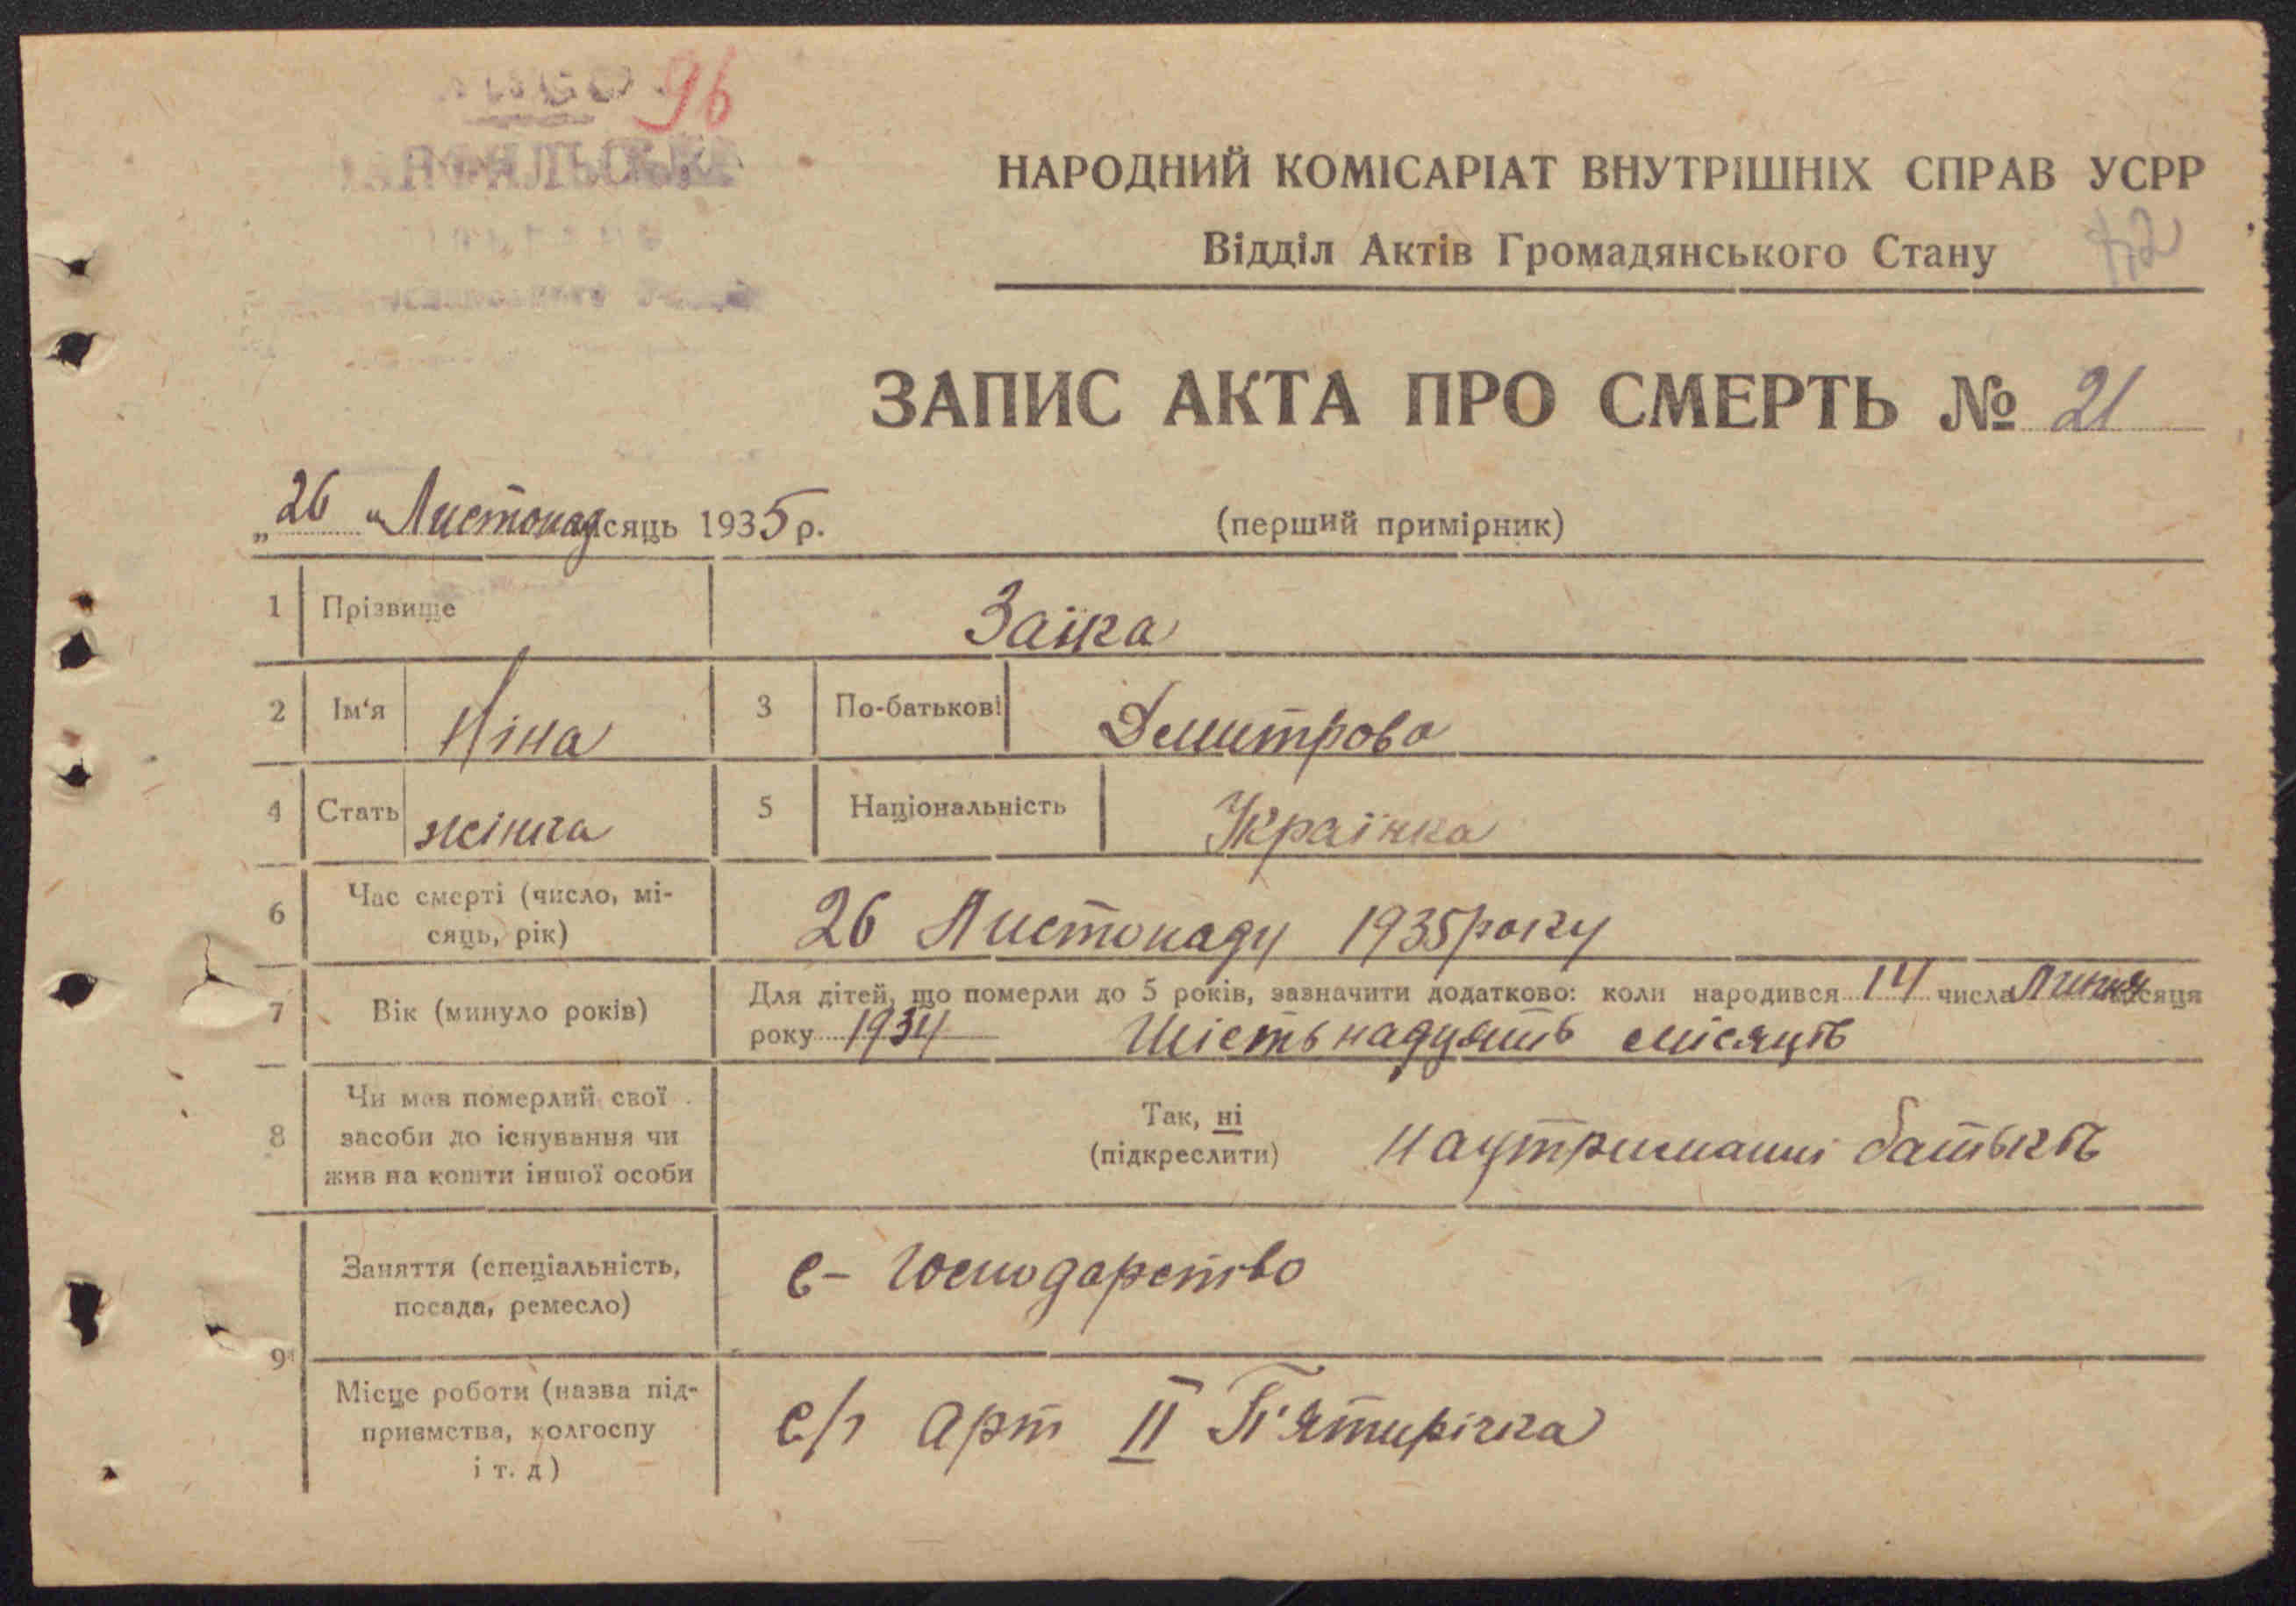 96
НАРОДНИЙ КОМІСАРІАТ ВНУТРІШНІХ СПРАВ УСРР
Відділ Актів Громадянського Стану
ЗАПИС АКТА ПРО СМЕРТЬ № 21
„26“ Листопад місяць 1935 р.
(перший примірник)
1 Прізвище Заіка
2 Ім'я Ніна 3 По-батькові Демитрова
4 Стать жінка 5 Національність Українка
6 Час смерті (число, мі-
сяць, рік) 26 Листопаду 1935 року
7 Вік (минуло років) Для дітей, що померли до 5 років, зазначити додатково: коли народився 14 числа Липня місяця
року 1934 Шістьнадцять місяців
8 Чи мав померлий свої
засоби до існування чи
жив на кошти іншої особи
Так, ні
(підкреслити) наутриманні батьків
9 Заняття (спеціальність,
посада, ремесло) с-господарство
Місце роботи (назва під-
приємства, колгоспу
і т. д) с/г арт II П'ятирічка